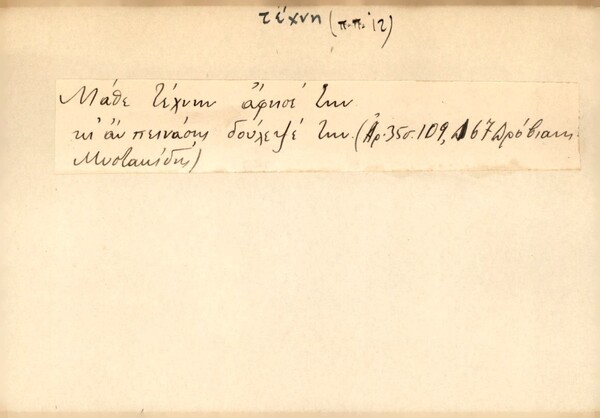 τέχνη (π.π. 12)
Μάθε τέχνην ἄφησέ την
κι' ἂν πεινάσῃς δούλεψέ την. (Ἀρ. 35 σ. 109, 167 Δρόβιανη
Μυστακίδης)